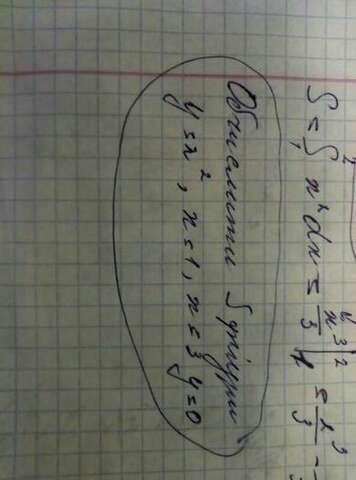 S = ∫₁² x² dx = x³/3 |₁² = 2³/3 -
Обчислити S фігури
y = x², x = 1, x = 3 y = 0